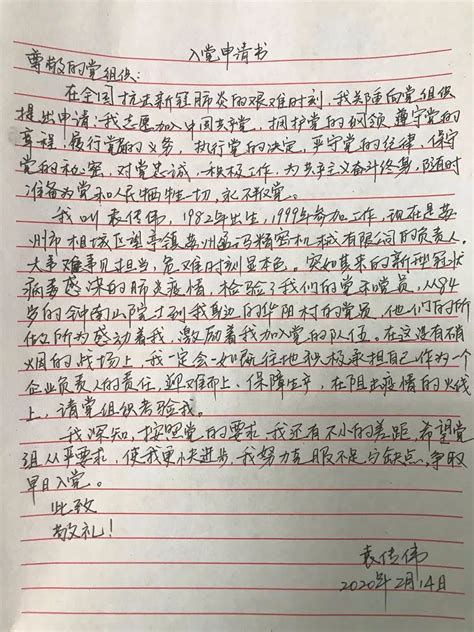 入党申请书
尊敬的党组织：
在全国抗击新冠肺炎的艰难时刻，我关隘向党组织
提出申请：我志愿加入中国共产党，拥护党的纲领，遵守党的
章程，履行党员的义务，执行党的决定，严守党的纪律，保守
党的秘密，对党忠诚，积极工作，为共产主义奋斗终身，随时
准备为党和人民牺牲一切，永不叛党。
我叫袁传伟，1982年出生，1999年参加工作，现在是苏
州市相城区望亭镇苏州通冯精密机械有限公司的负责人，
大事难事见担当，危难时刻显本色。突如其来的新型冠状
病毒感染的肺炎疫情，检验了我们的党和党员，从84
岁的钟南山院士到我身边的华阳村的党员，他们的所
作所为感动着我，激励着我加入党的队伍。在这没有硝
烟的战场上，我一定会一如既往地积极承担自己作为一个
企业负责人的责任，迎难而上、保障生产，在阻击疫情的火线
上，请党组织考验我。
我深知，按照党的要求，我还有不小的差距，希望党
组从严要求，使我更快进步。我努力克服不足与缺点，争取
早日入党。
此致
敬礼！
袁传伟
2020年2月14日